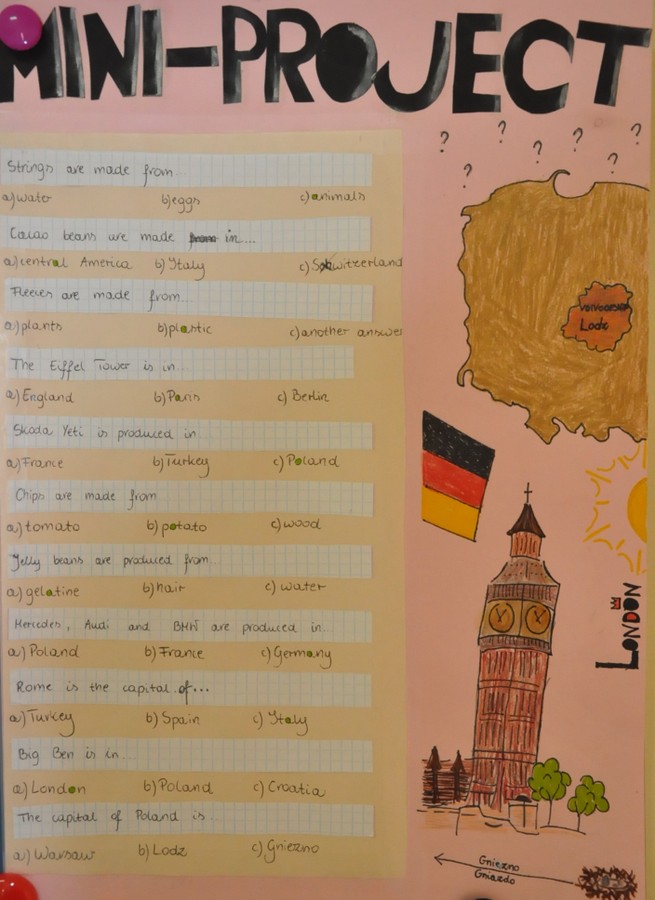 MINI-PROJECT
? ? ? ? ? ? ?
Strings are made from...
a) wate b) eggs c) animals
Cacao beans are made in....
a) central America b) Italy c) Switzerland
Fleeces are made from...
a) plants b) plastic c) another answer
VOIVODESHIP
Lodz
The Eiffel Tower is in...
a) England b) Paris c) Berlin
Skoda Yeti is produced in...
a) France b) Turkey c) Poland
Chips are made from
a) tomato b) potato c) wood
Jelly beans are produced from...
a) gelatine b) hair c) water
LONDON
Mercedes, Audi and BMW are produced in...
a) Poland b) France c) Germany
Rome is the capital of...
a) Turkey b) Spain c) Italy
Big Ben is in...
a) London b) Poland c) Croatia
The capital of Poland is...
a) Warsaw b) Lodz c) Gniezno
Gniezno
Gniazdo